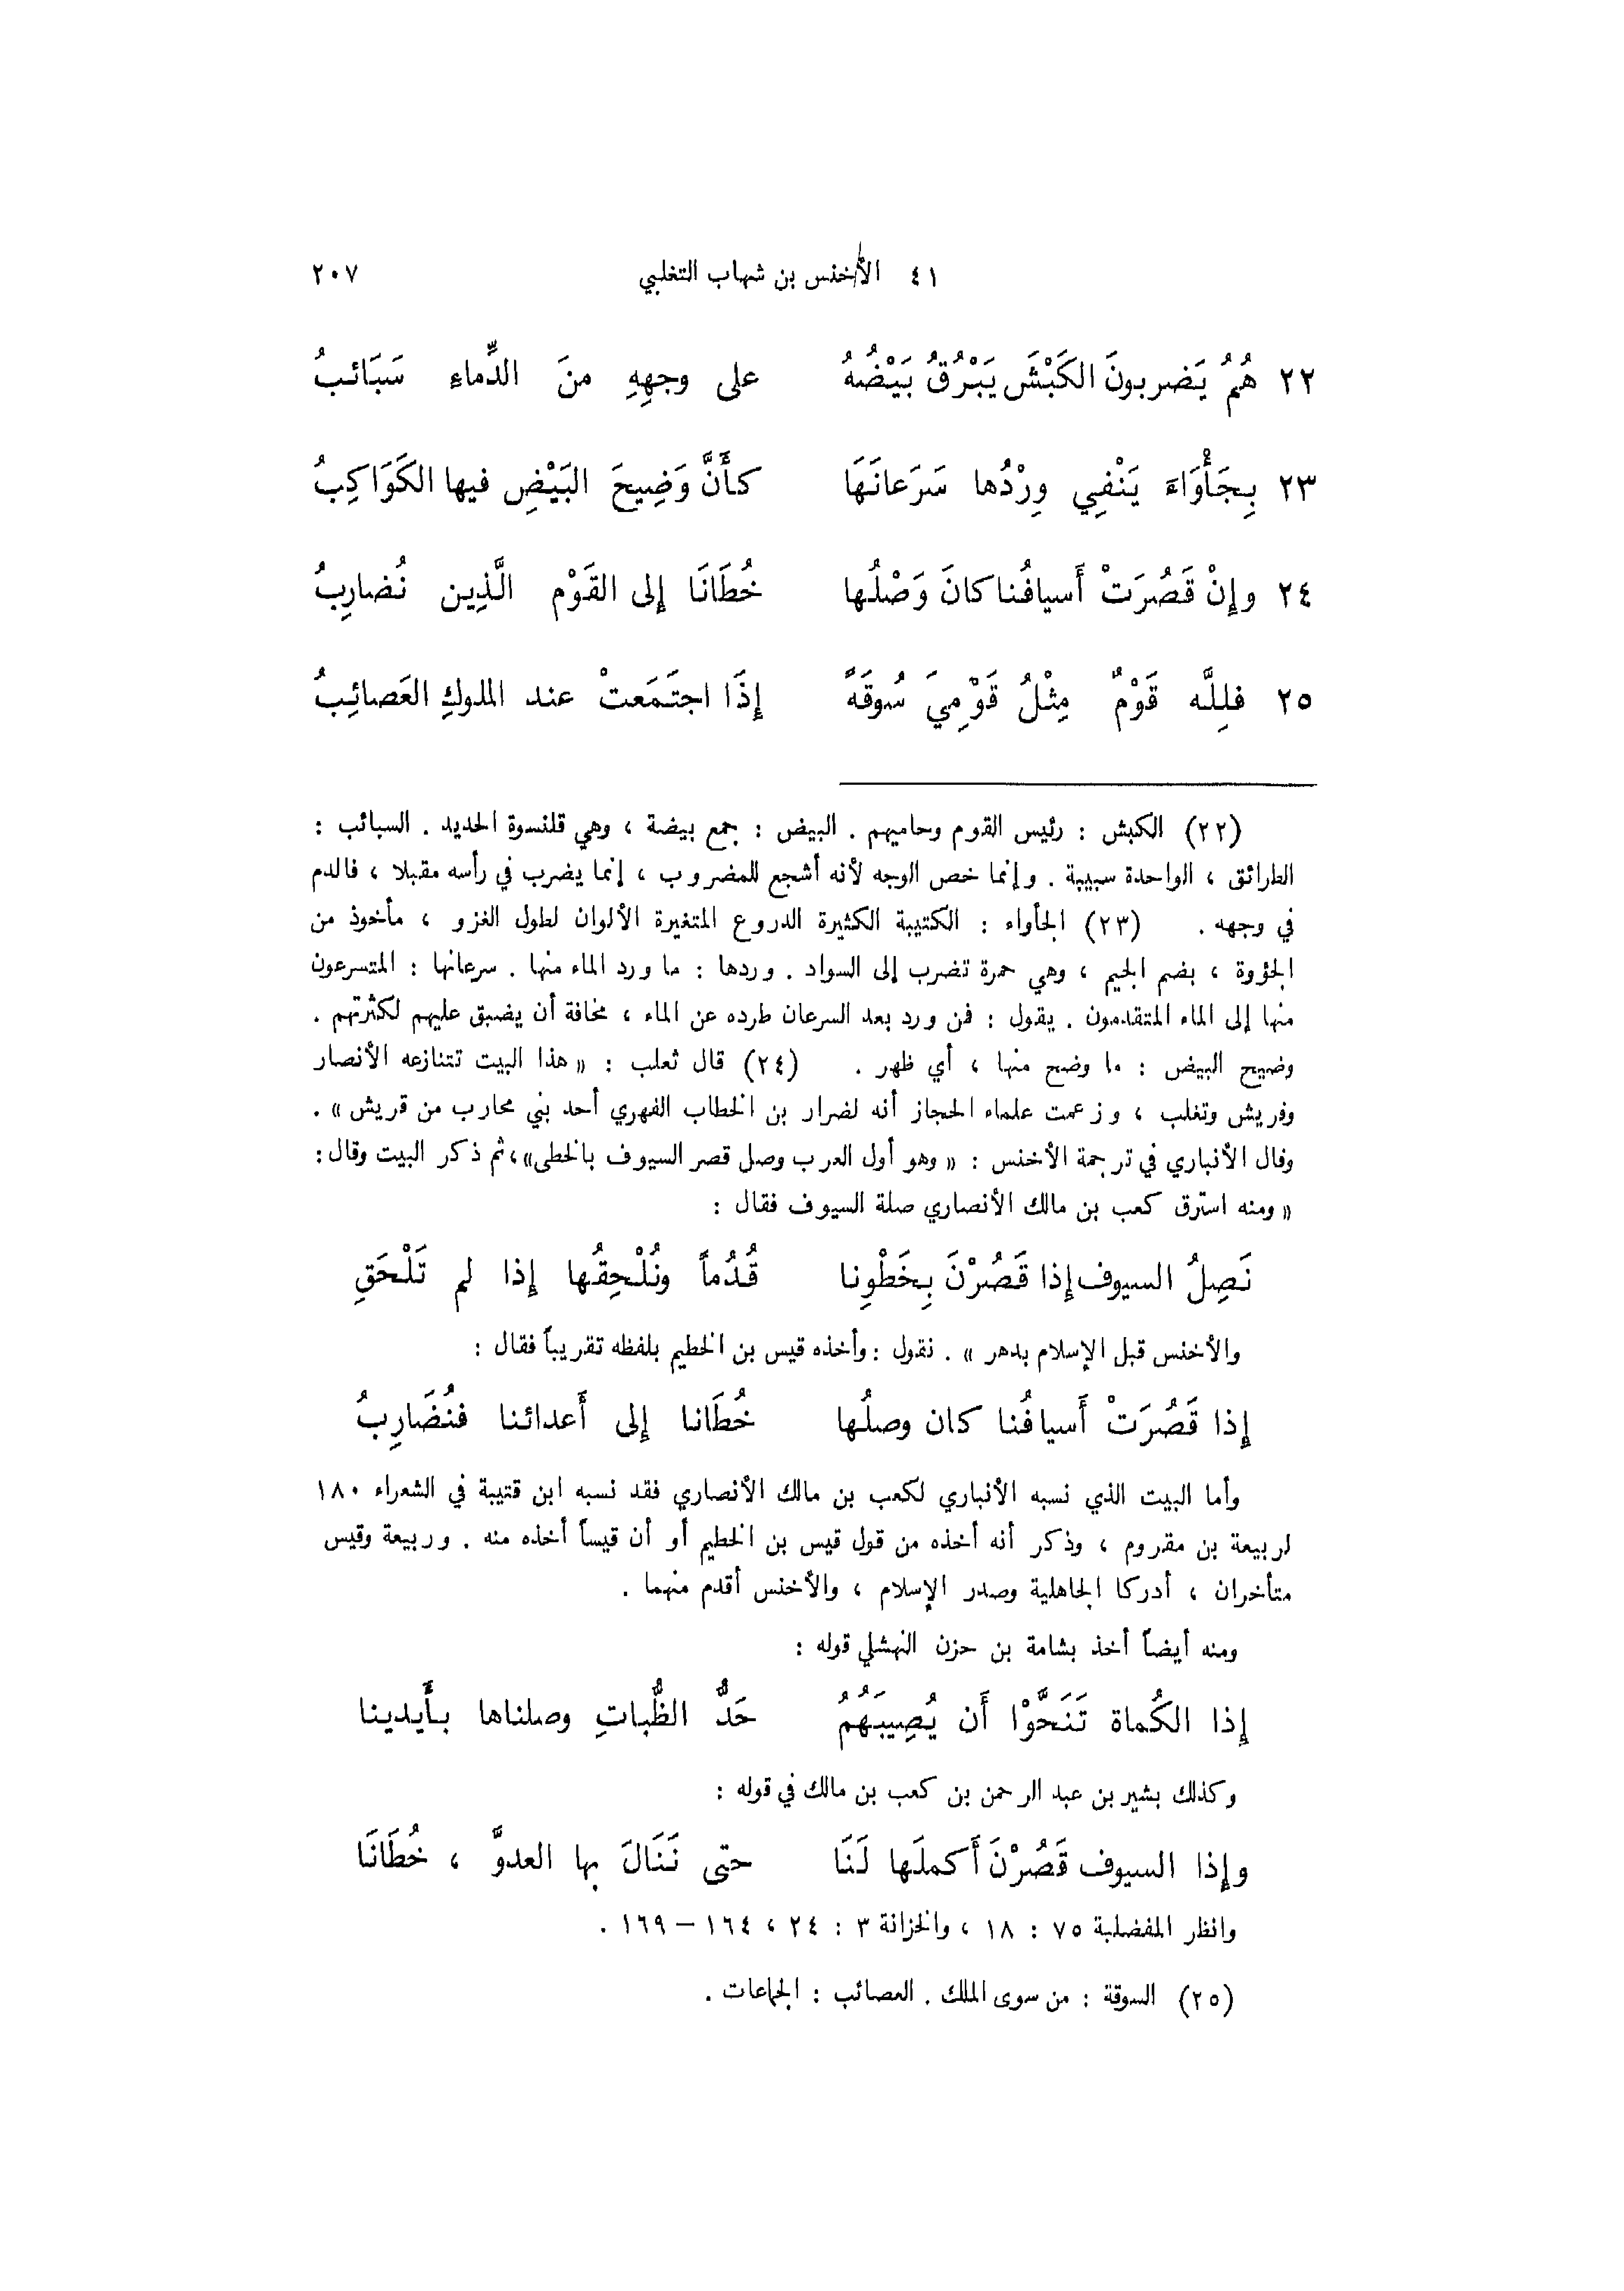 ٤١ الأخنس بن شهاب التغلبي ٢٠٧
٢٢ هُمُ يَضربونَ الكَبْشَ يَبْرُقُ بَيْضُهُ على وجهِهِ منَ الدِّماءِ سَبَائبُ
٢٣ بِجَأْوَاءَ يَنْفِي وِرْدُها سَرَعانَهَا كأَنَّ وَضِيحَ البَيْضِ فيها الكَوَاكِبُ
٢٤ وإِنْ قَصُرَتْ أَسيافُنا كانَ وَصْلُها خُطَانَا إلى القَوْمِ الَّذِين نُضارِبُ
٢٥ فلِلَّهِ قَوْمٌ مِثْلُ قَوْمِيَ سُوقَةً إِذَا اجتَمَعتْ عند الملوكِ العَصائِبُ
(٢٢) الكبش : رئيس القوم وحاميهم . البيض : جمع بيضة ، وهي قلنسوة الحديد . السبائب :
الطرائق ، الواحدة سبيبة . وإنما خص الوجه لأنه أشجع للمضروب ، إنما يضرب في رأسه مقبلا ، فالدم
في وجهه . (٢٣) الجأواء : الكتيبة الكثيرة الدروع المتغيرة الألوان لطول الغزو ، مأخوذ من
الجؤوة ، بضم الجيم ، وهي حمرة تضرب إلى السواد . وردها : ما ورد الماء منها . سرعانها : المتسرعون
منها إلى الماء المتقدمون . يقول : فمن ورد بعد السرعان طرده عن الماء ، مخافة أن يضيق عليهم لكثرتهم .
وضيح البيض : ما وضح منها ، أي ظهر . (٢٤) قال ثعلب : « هذا البيت تتنازعه الأنصار
وقريش وتغلب ، وزعمت علماء الحجاز أنه لضرار بن الخطاب الفهري أحد بني محارب من قريش » .
وقال الأنباري في ترجمة الأخنس : « وهو أول العرب وصل قصر السيوف بالخطى»، ثم ذكر البيت وقال :
« ومنه استرق كعب بن مالك الأنصاري صلة السيوف فقال :
نَصِلُ السيوف إذا قَصُرْنَ بِخَطْوِنا قُدُماً ونُلْحِقُها إذا لم تَلْحَقِ
والأخنس قبل الإسلام بدهر » . نقول : وأخذه قيس بن الخطيم بلفظه تقريباً فقال :
إذا قَصُرَتْ أَسيافُنا كان وصلُها خُطَانا إلى أَعدائنا فنُضَارِبُ
وأما البيت الذي نسبه الأنباري لكعب بن مالك الأنصاري فقد نسبه ابن قتيبة في الشعراء ١٨٠
لربيعة بن مقروم ، وذكر أنه أخذه من قول قيس بن الخطيم أو أن قيساً أخذه منه . وربيعة وقيس
متأخران ، أدركا الجاهلية وصدر الإسلام ، والأخنس أقدم منهما .
ومنه أيضاً أخذ بشامة بن حزن النهشلي قوله :
إذا الكُماة تَنَحَّوْا أَن يُصِيبَهُمُ حَدُّ الظُّباتِ وصلناها بأَيدينا
وكذلك بشير بن عبد الرحمن بن كعب بن مالك في قوله :
وإذا السيوف قَصُرْنَ أَكملَها لَنَا حتى نَنَالَ بها العدوَّ ، خُطَانَا
وانظر المفضلية ٧٥ : ١٨ ، والخزانة ٣ : ٢٤ ، ١٦٤ – ١٦٩ .
(٢٥) السوقة : من سوى الملك . العصائب : الجماعات .